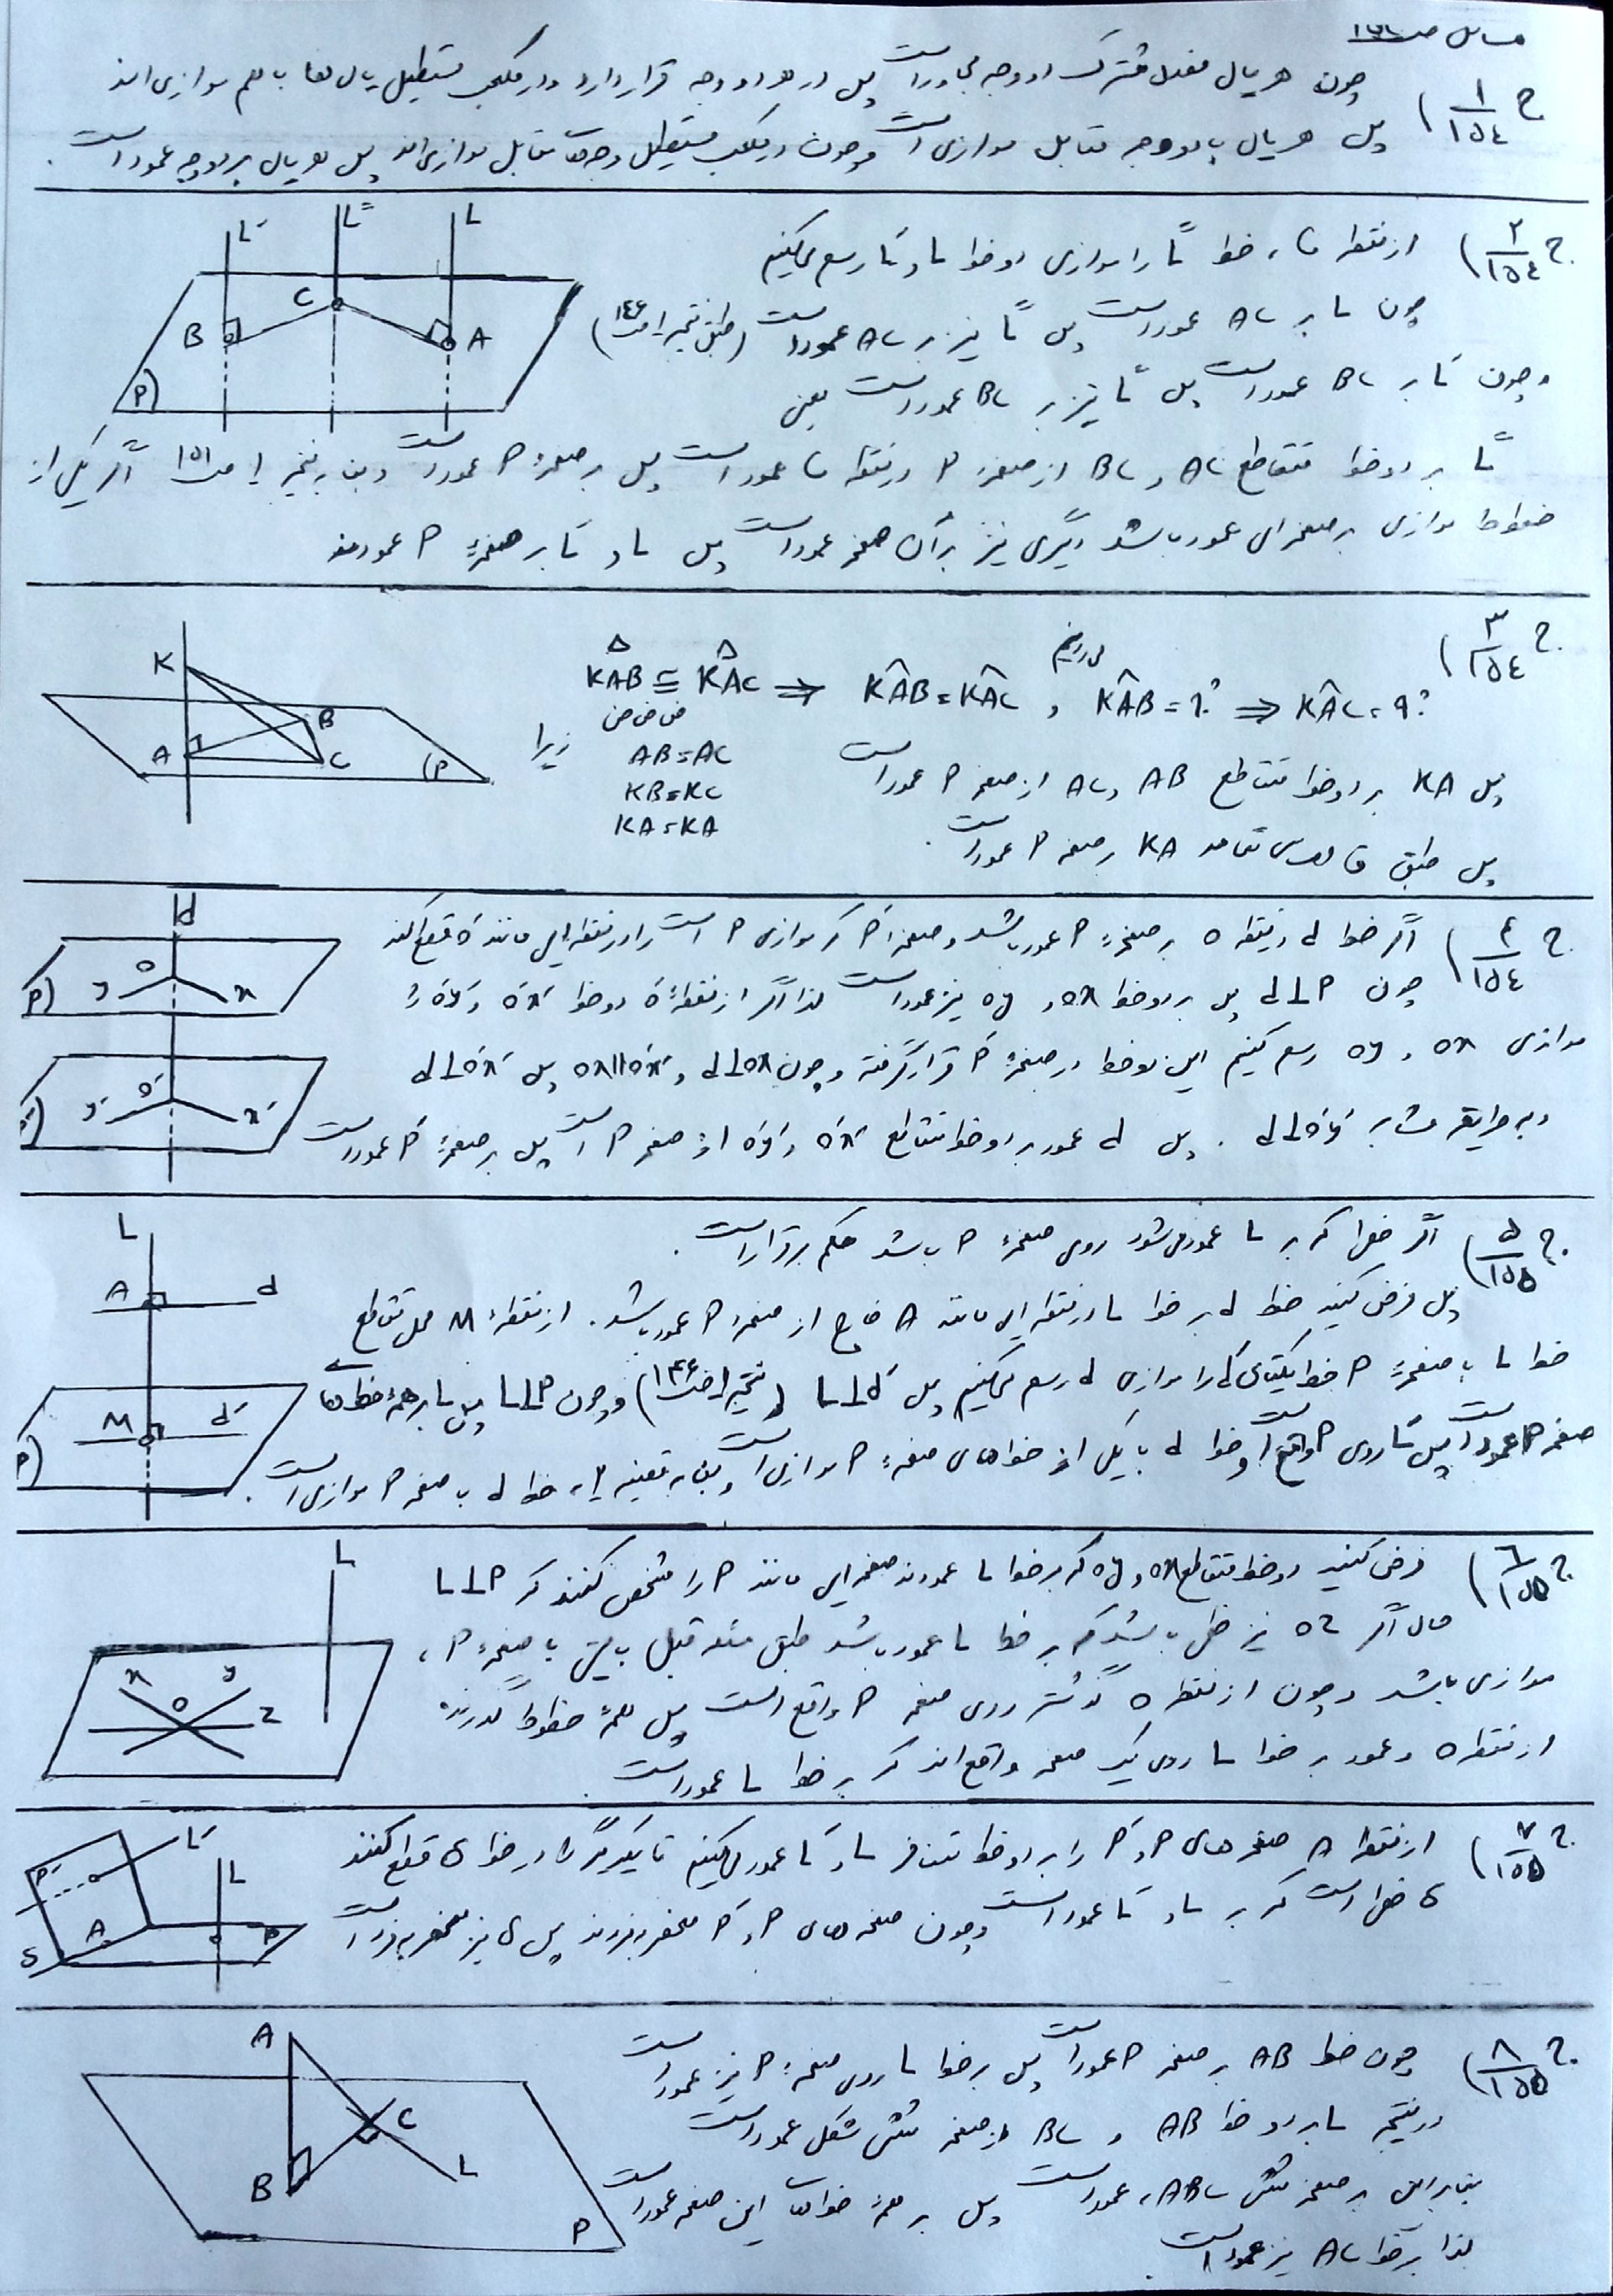 مسایل ص
ج ۱/۱۵۴) چون هر یال فصل مشترک دو وجه مجاور است پس در هر دو وجه قرار دارد و در مکعب مستطیل یال‌ها با هم موازی‌اند
پس هر یال با دو وجه مقابل موازی است و چون در مکعب مستطیل وجوه مقابل موازی‌اند پس هر یال بر دو وجه عمود است.
ج ۲/۱۵۴) از نقطه C، خط L″ را موازی دو خط L و L′ رسم می‌کنیم
چون L بر AC عمود است پس L″ نیز بر AC عمود است (طبق نتیجه ۱ ص ۱۴۶)
و چون L′ بر BC عمود است پس L″ نیز بر BC عمود است یعنی
L″ بر دو خط متقاطع AC و BC از صفحهٔ P در نقطه C عمود است پس بر صفحهٔ P عمود است و بنا بر نتیجه ۱ ص ۱۵۱ اگر یکی از
خطوط موازی بر صفحه‌ای عمود باشد دیگری نیز بر آن صفحه عمود است پس L و L′ بر صفحهٔ P عمودند
L′ L″ L
B C A
P
ج ۳/۱۵۴) KAB ≅ KAC ⇒ KAB = KAC و داریم KAB = 90° ⇒ KAC = 90°
ض ض ض
زیرا AB = AC
KB = KC
KA = KA
پس KA بر دو خط متقاطع AB و AC از صفحه P عمود است
پس طبق قضیه اساسی تعامد KA بر صفحه P عمود است.
K
A B C P
ج ۴/۱۵۴) اگر خط d در نقطه O بر صفحهٔ P عمود باشد و صفحه P′ که موازی P است را در نقطه‌ای مانند O′ قطع کند
چون d⊥P پس بر دو خط Ox و Oy نیز عمود است لذا اگر از نقطهٔ O′ دو خط O′x′ و O′y′ را
موازی Ox و Oy رسم کنیم این دو خط در صفحهٔ P′ قرار گرفته و چون d⊥Ox و Ox||O′x′ پس d⊥O′x′
و به طریقه مشابه d⊥O′y′. پس d عمود بر دو خط متقاطع O′x′ و O′y′ از صفحه P′ است پس بر صفحهٔ P′ عمود است
d
O y x P
O′ y′ x′ P′
ج ۵/۱۵۵) اگر خطی که بر L عمود می‌شود روی صفحهٔ P باشد حکم برقرار است.
پس فرض کنید خط d بر خط L در نقطه‌ای مانند A خارج از صفحهٔ P عمود باشد. از نقطهٔ M محل تقاطع
خط L با صفحهٔ P خط یکتای d′ را موازی d رسم می‌کنیم پس L⊥d′ (نتیجه ۱ ص ۱۴۶) و چون L⊥P پس L بر همهٔ خط‌های
صفحه P عمود است پس d′ روی P واقع است و خط d با یکی از خط‌های صفحهٔ P موازی است و بنا به قضیه ۲، خط d با صفحه P موازی است.
L
A d
M d′
P
ج ۶/۱۵۵) فرض کنید دو خط متقاطع Ox و Oy که بر خط L عمودند صفحه‌ای مانند P را مشخص کنند که L⊥P
حال اگر Oz نیز خطی باشد که بر خط L عمود باشد طبق مسئله قبل بایستی با صفحهٔ P،
موازی باشد و چون از نقطه O گذشته روی صفحه P واقع است پس همهٔ خطوط گذرنده
از نقطه O و عمود بر خط L روی یک صفحه واقع‌اند که بر خط L عمود است.
L
x y
O z
ج ۷/۱۵۵) از نقطه A صفحه‌های P و P′ را بر دو خط متنافر L و L′ عمود می‌کنیم تا یکدیگر را در خط δ قطع کنند
δ خطی است که بر L و L′ عمود است و چون صفحه‌های P و P′ منحصر بفردند پس δ نیز منحصر بفرد است
P′ L′ L
δ A P
ج ۸/۱۵۵) چون خط AB بر صفحه P عمود است پس بر خط L روی صفحهٔ P نیز عمود است
در نتیجه L بر دو خط AB و BC از صفحه مثلثی شکل عمود است
بنابراین بر صفحه مثلث ABC، عمود است پس بر همهٔ خط‌های این صفحه عمود است
لذا بر خط AC نیز عمود است.
A
C
B L
P